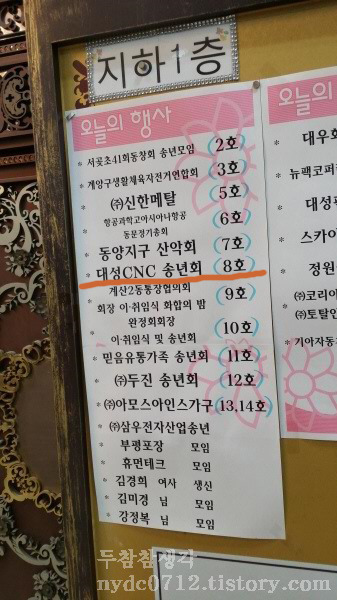 지하1층
오늘의 행사
* 서곶초41회동창회 송년모임 (2호)
* 계양구생활체육자전거연합회 (3호)
* ㈜신한메탈 (5호)
항공과학고아시아나항공
* 동문정기총회 (6호)
동양지구 산악회 (7호)
* 대성CNC 송년회 (8호)
계산2동통장협의회
* 회장 이·취임식 화합의 밤 (9호)
완정회회장
* 이·취임식 및 송년회 (10호)
* 믿음유통가족 송년회 (11호)
* ㈜두진 송년회 (12호)
* ㈜아모스아인스가구 (13,14호)
* ㈜삼우전자산업송년
* 부평포장 모임
* 휴먼테크 모임
* 김경희 여사 생신
* 김미경 님 모임
* 강정복 님 모임
오늘의
대우
뉴팩코퍼
대성
스카이
정원
㈜코리아
㈜토탈인
기아자동
두참참생각
nydc0712.tistory.com